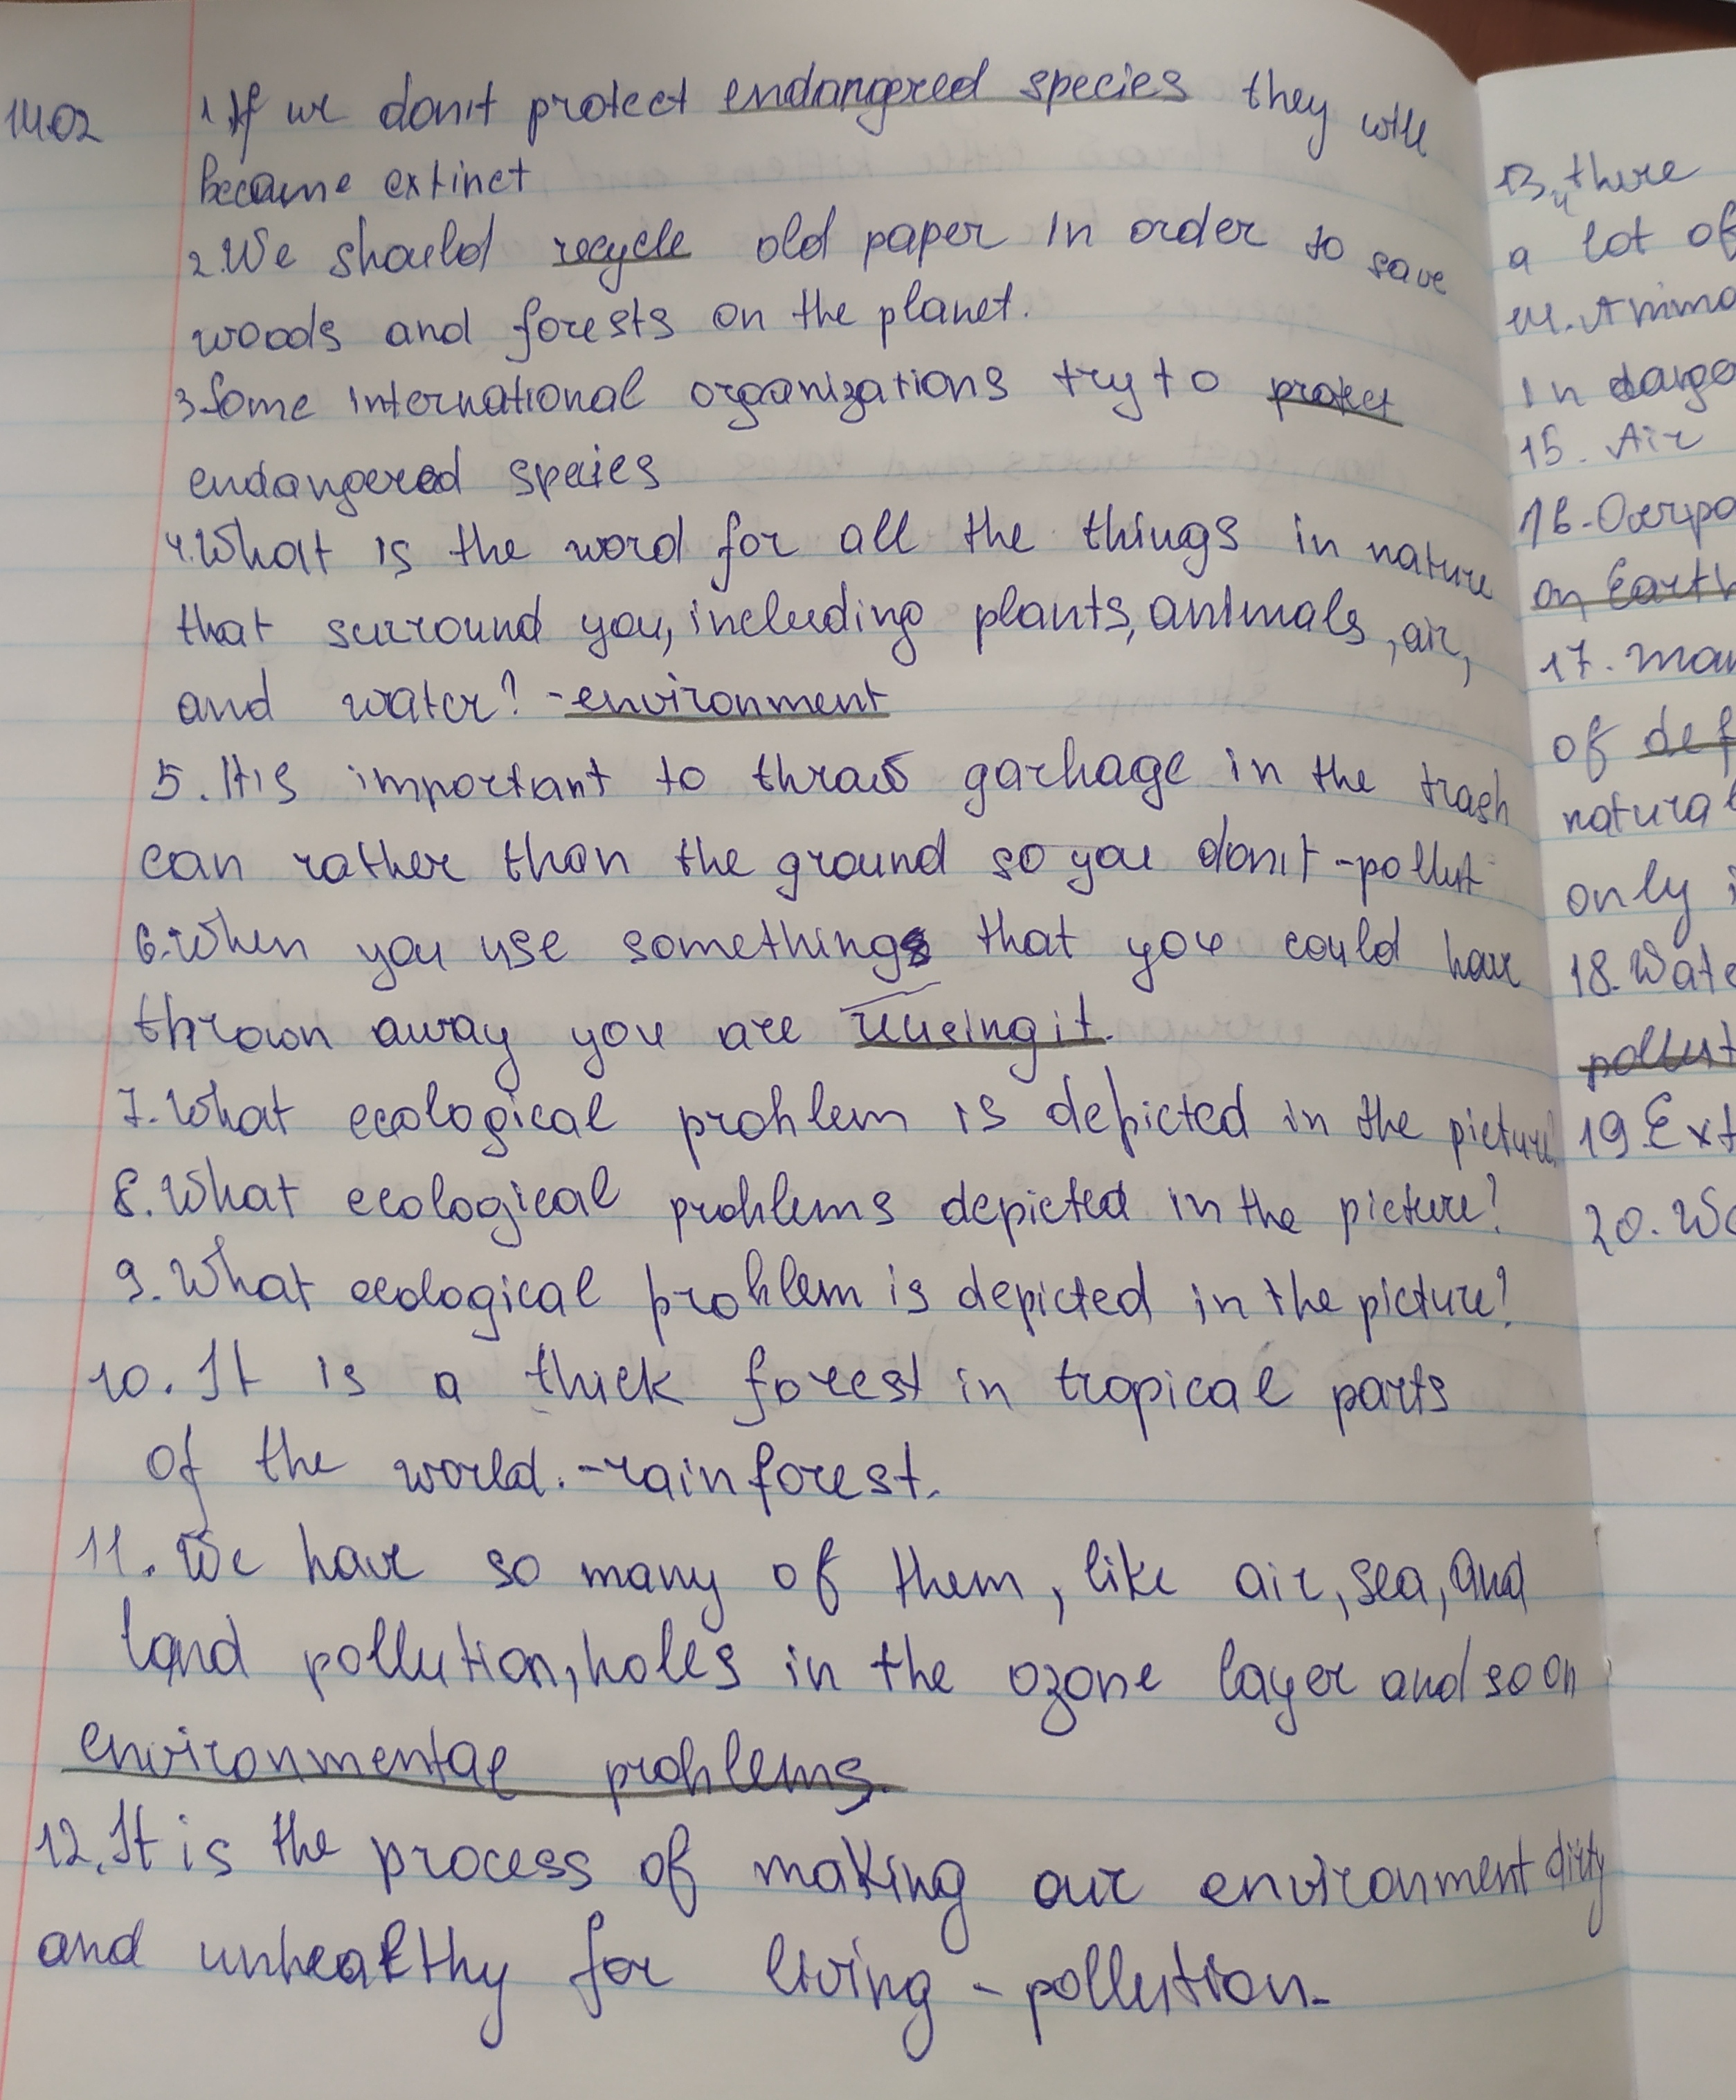 14.02
1. If we don't protect endangered species they will
became extinct
2. We should recycle old paper in order to save
woods and forests on the planet.
3. Some international organizations try to protect
endangered speies
4. What is the word for all the things in nature
that surround you, including plants, animals, air,
and water? - environment
5. It is important to thraw garbage in the trash
can rather than the ground so you don't - pollut
6. When you use something that you could have
thrown away you are reusing it.
7. What ecological problem is depicted in the picture
8. What ecological problems depicted in the picture?
9. What ecological problem is depicted in the picture?
10. It is a thick forest in tropical parts
of the world. - rainforest.
11. We have so many of them, like air, sea, and
land pollution, holes in the ozone layer and so on
environmental problems.
12. It is the process of making our environment dirty
and unhealthy for living - pollution.
13. there
a lot of
14.
In
15. Air
16.
on Earth
17.
of def
natural
only
18. Wate
pollut
19 Ext
20.